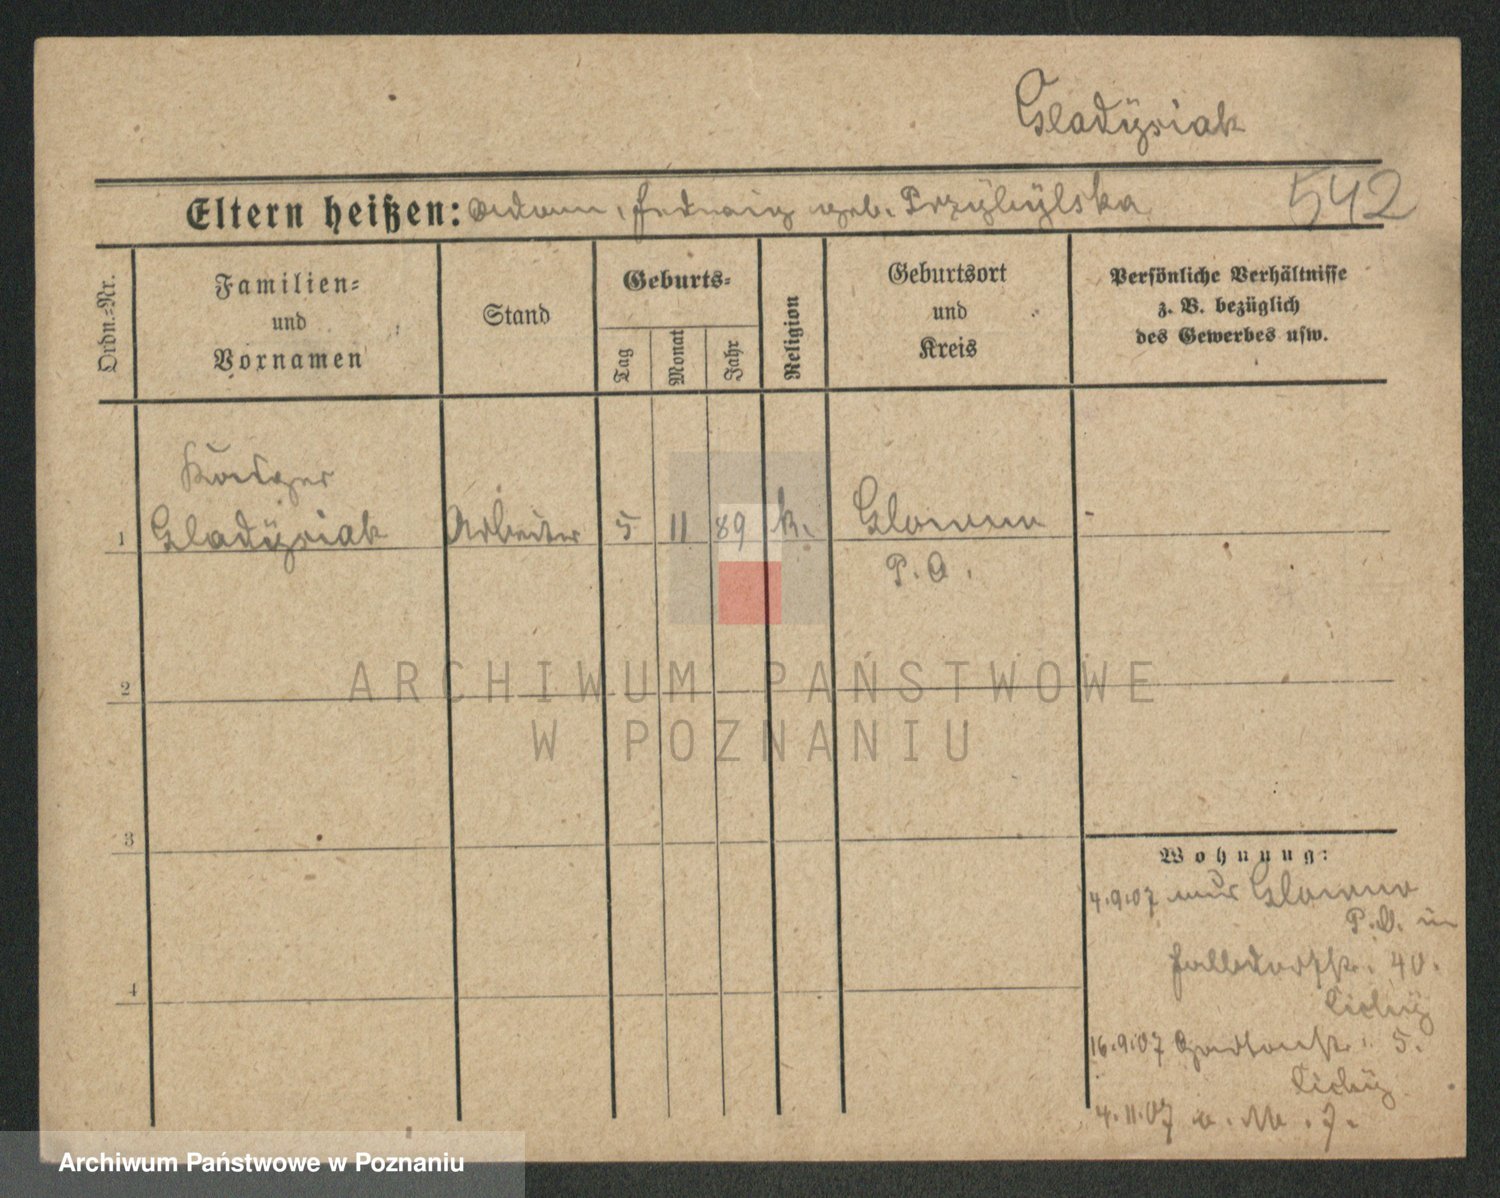 Gladÿsiak
Eltern heißen: Adam, Hedwig geb. Przÿbÿlska 542
Ordn.-Nr.
Familien-
und
Vornamen
Stand
Geburts-
Tag
Monat
Jahr
Religion
Geburtsort
und
Kreis
Persönliche Verhältnisse
z. B. bezüglich
des Gewerbes usw.
1 Gladÿsiak Arbeiter 5 11 89 k. Glowno -
P. O.
2
3
4
Wohnung:
4.9.07 aus Glowno
P. O. in
40.
Cichÿ
16.9.07 5.
Cichÿ
4.11.07
ARCHIWUM PAŃSTWOWE
W POZNANIU
Archiwum Państwowe w Poznaniu